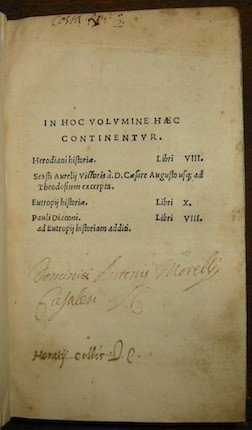 Costa
IN HOC VOLVMINE HÆC
CONTINENTVR.
Herodiani historiæ. Libri VIII.
Sexti Aurelij Victoris à D. Cæsare Augusto usq; ad
Theodosium excerpta.
Eutropij historiæ. Libri X.
Pauli Diaconi. Libri VIII.
ad Eutropij historiam additi.
Dominici Antonij Morelli
Casalen
Horatij Collis D. C.